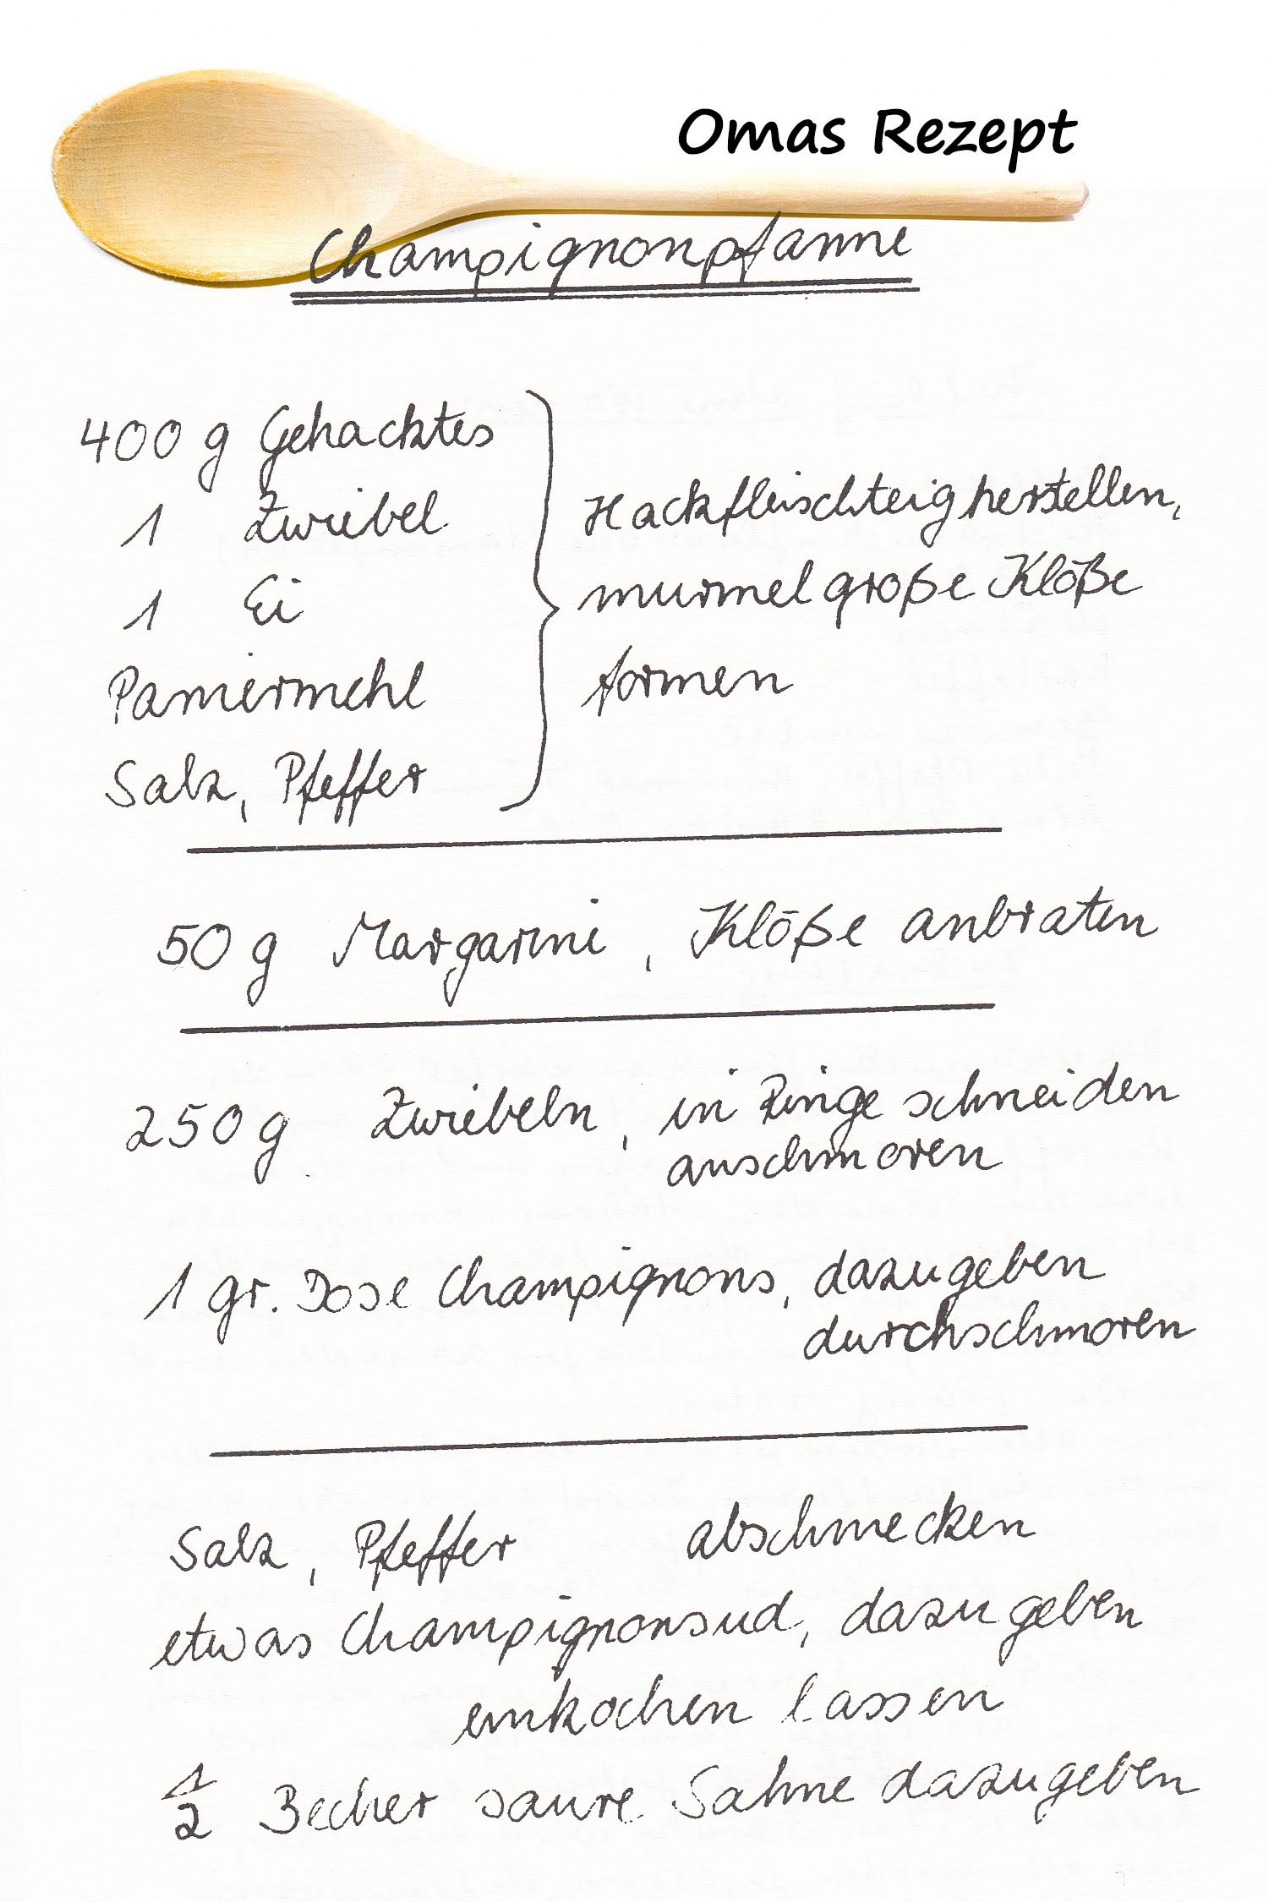 Omas Rezept
Champignonpfanne
400 g Gehacktes
1 Zwiebel
1 Ei
Paniermehl
Salz, Pfeffer
Hackfleischteig herstellen,
murmelgroße Klöße
formen
50 g Margarine, Klöße anbraten
250 g Zwiebeln, in Ringe schneiden
anschmoren
1 gr. Dose Champignons, dazugeben
durchschmoren
Salz, Pfeffer abschmecken
etwas Champignonsud, dazugeben
einkochen lassen
1/2 Becher saure Sahne dazugeben